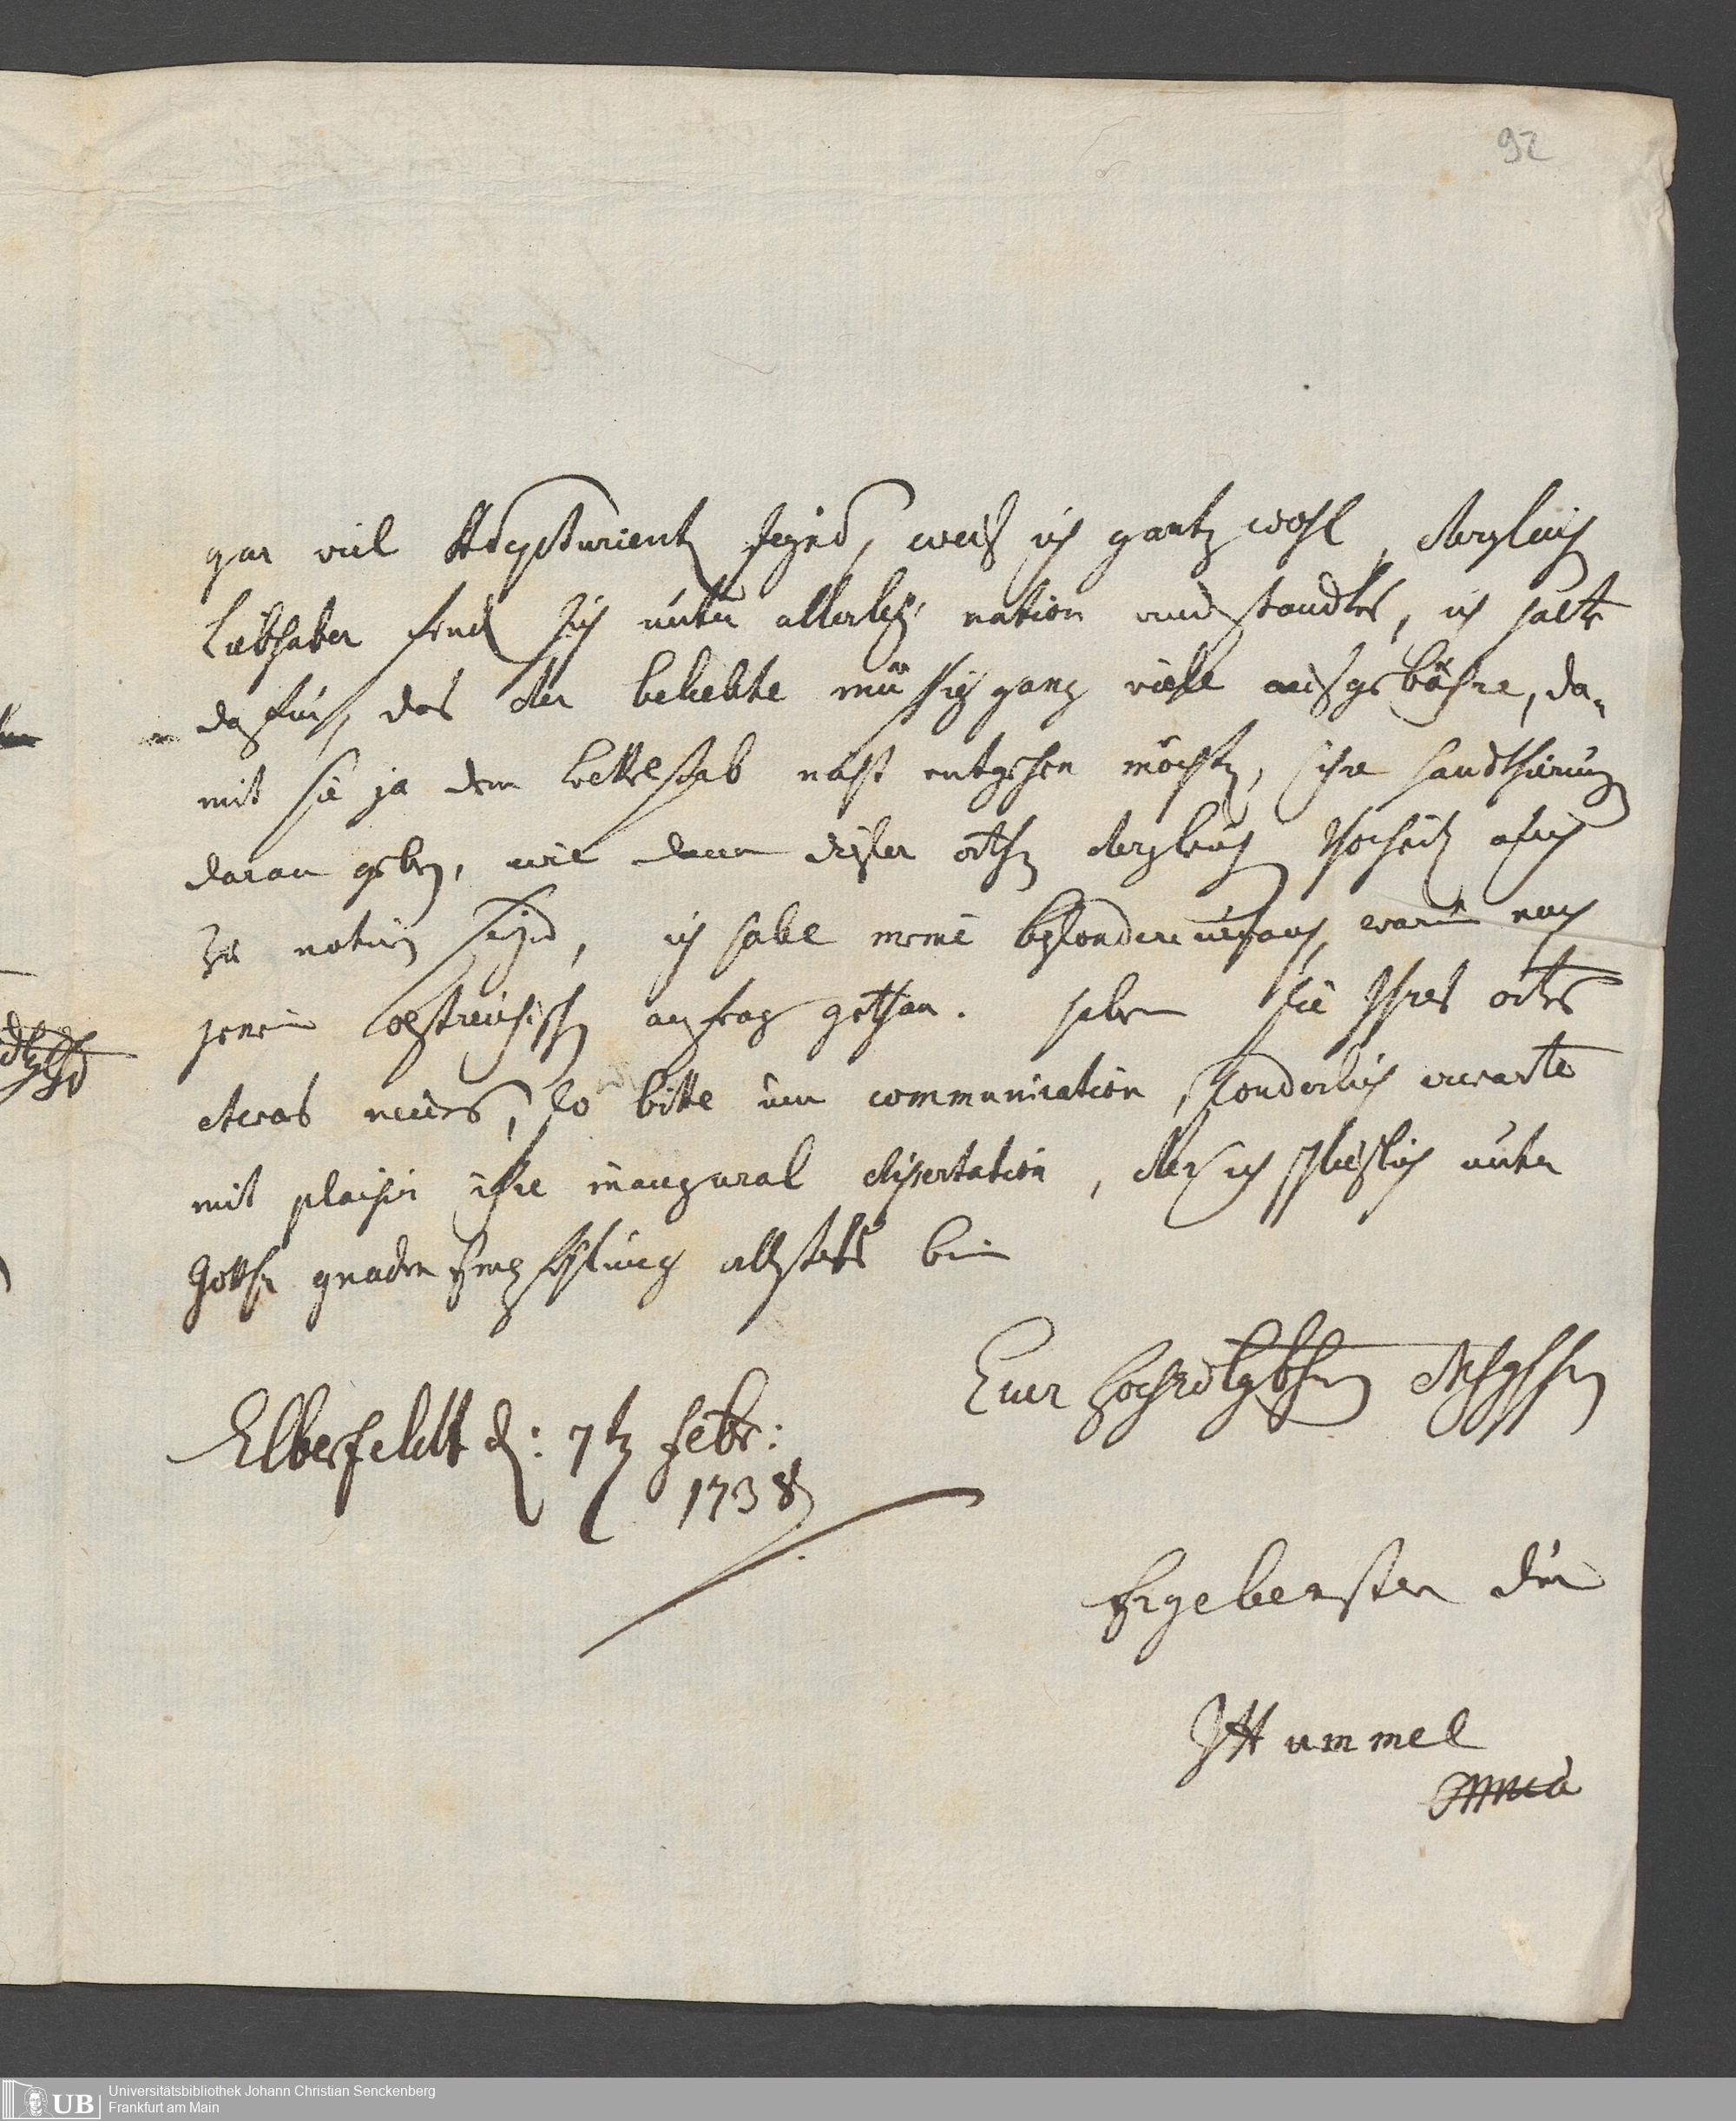 92
gar viel seynd, weiß ich gantz wohl, dergleich
liebhaber find sich unter allerley nation und standtes, ich halte
dafür, das der beliebte müssiggang viele ausgebähre, da-
mit sie ja dem bettelstab nicht entgehen möcht, ihre handthierung
daran geben, wie dann dieser orth dergleich auch
zu seynd, ich habe meine besondere warum nach
jenem anfrag gethan. haben sie Ihres ortes
etwas neues, so bitte um communication, sonderlich erwarte
mit plaisir ihre inaugural dissertation, der ich schlieslich unter
Gottes gnaden Empfehlung allstets bin
Euer
Elberfeldt d: 7t Febr:
1738
Ergebenster
JHummel
Universitätsbibliothek Johann Christian Senckenberg
Frankfurt am Main
UB